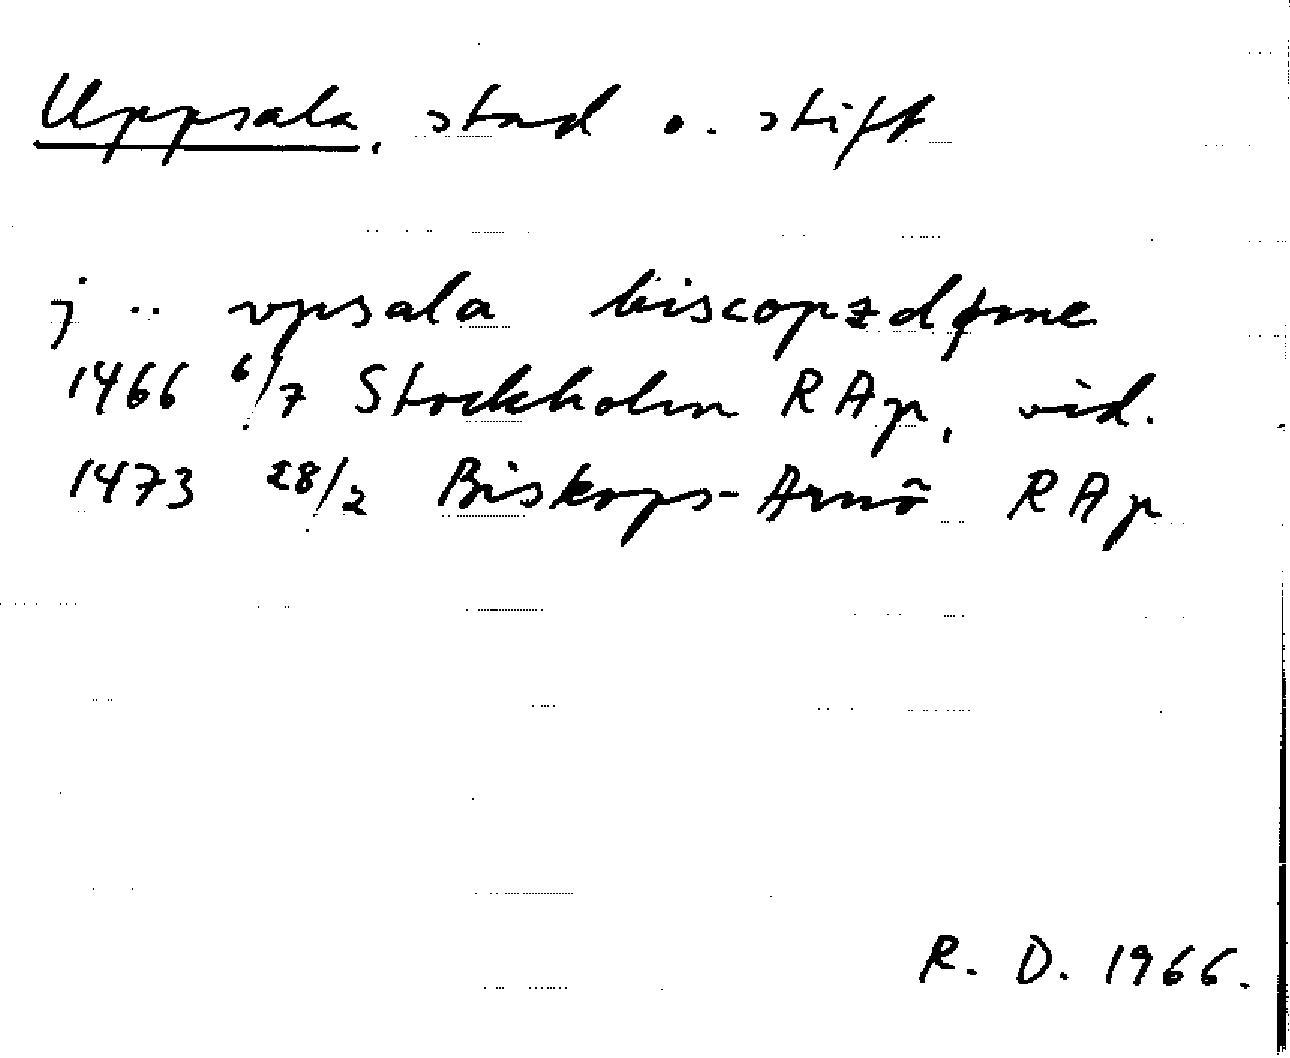 Uppsala, stad o. stift
j .. vpsala biscopzdøme
1466 6/7 Stockholm RAp, vid.
1473 28/2 Biskops-Arnö RAp
R. D. 1966.